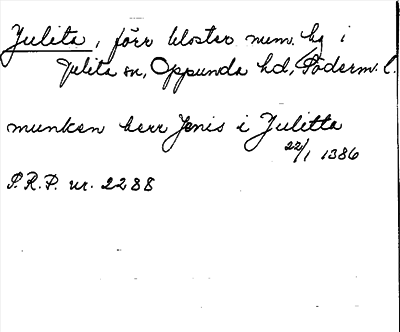 Julita, förr kloster num. hg i
Julita sn, Oppunda hd, Söderm. l.
munken herr Jenis i Julitta
22/1 1386
S.R.P. nr. 2288